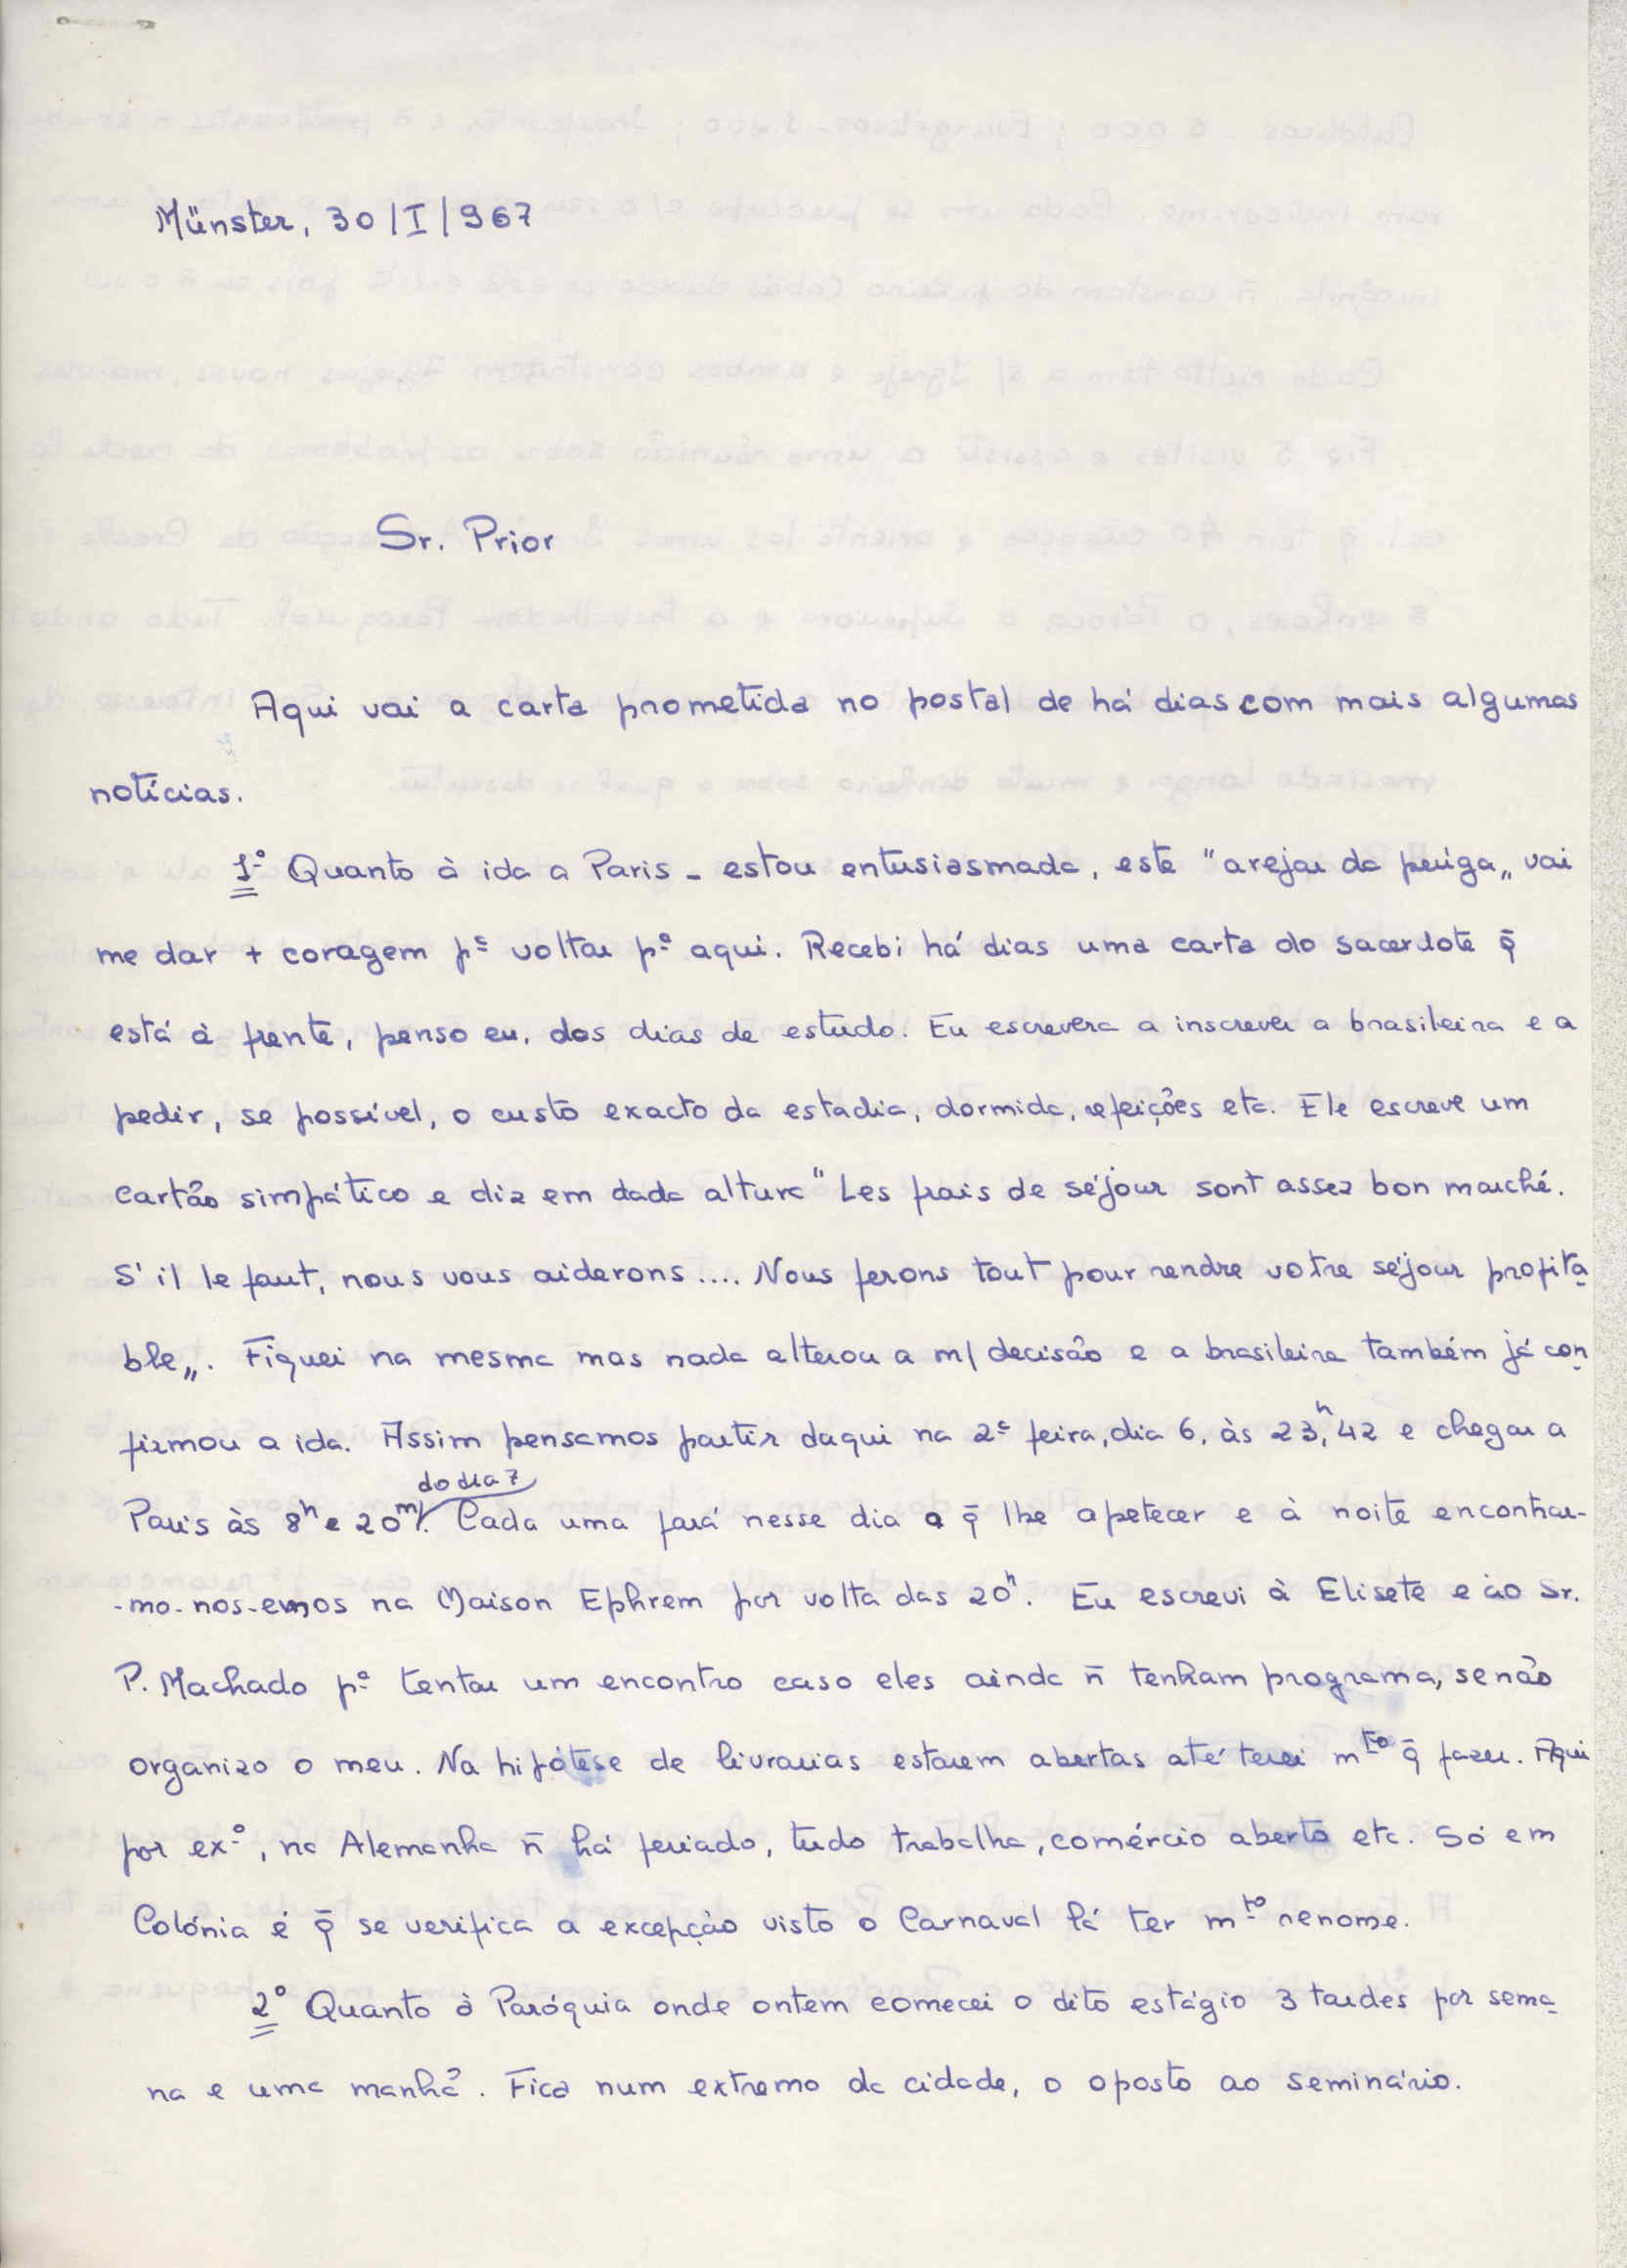 Münster, 30/I/967
Sr. Prior
Aqui vai a carta prometida no postal de há dias com mais algumas
notícias.
1.º Quanto à ida a Paris - estou entusiasmada, este "arejar da peúga„ vai
me dar + coragem pª voltar pª aqui. Recebi há dias uma carta do sacerdote q̄
está à frente, penso eu, dos dias de estudo. Eu escrevera a inscrever a brasileira e a
pedir, se possível, o custo exacto da estadia, dormida, refeições etc. Ele escreve um
cartão simpático e diz em dada altura "Les frais de séjour sont assez bon marché.
S'il le faut, nous vous aiderons.... Nous ferons tout pour rendre votre séjour profita
ble„. Fiquei na mesma mas nada alterou a m/ decisão e a brasileira também já con
firmou a ida. Assim pensamos partir daqui na 2ª feira, dia 6, às 23,ʰ42 e chegar a
Paris às 8ʰ e 20ᵐ/. do dia 7 Cada uma fará nesse dia o q̄ lhe apetecer e à noite encontrar-
-mo-nos-emos na Maison Ephrem por volta das 20ʰ. Eu escrevi à Elisete e ao Sr.
P. Machado pª tentar um encontro caso eles ainda n̄ tenham programa, senão
organizo o meu. Na hipótese de livrarias estarem abertas até terei mᵗᵒ q̄ fazer. Aqui
por ex.º, na Alemanha n̄ há feriado, tudo trabalha, comércio aberto etc. Só em
Colónia é q̄ se verifica a excepção visto o Carnaval lá ter mᵗᵒ renome.
2º Quanto à Paróquia onde ontem comecei o dito estágio 3 tardes por sema
na e uma manhã. Fica num extremo da cidade, o oposto ao seminário.